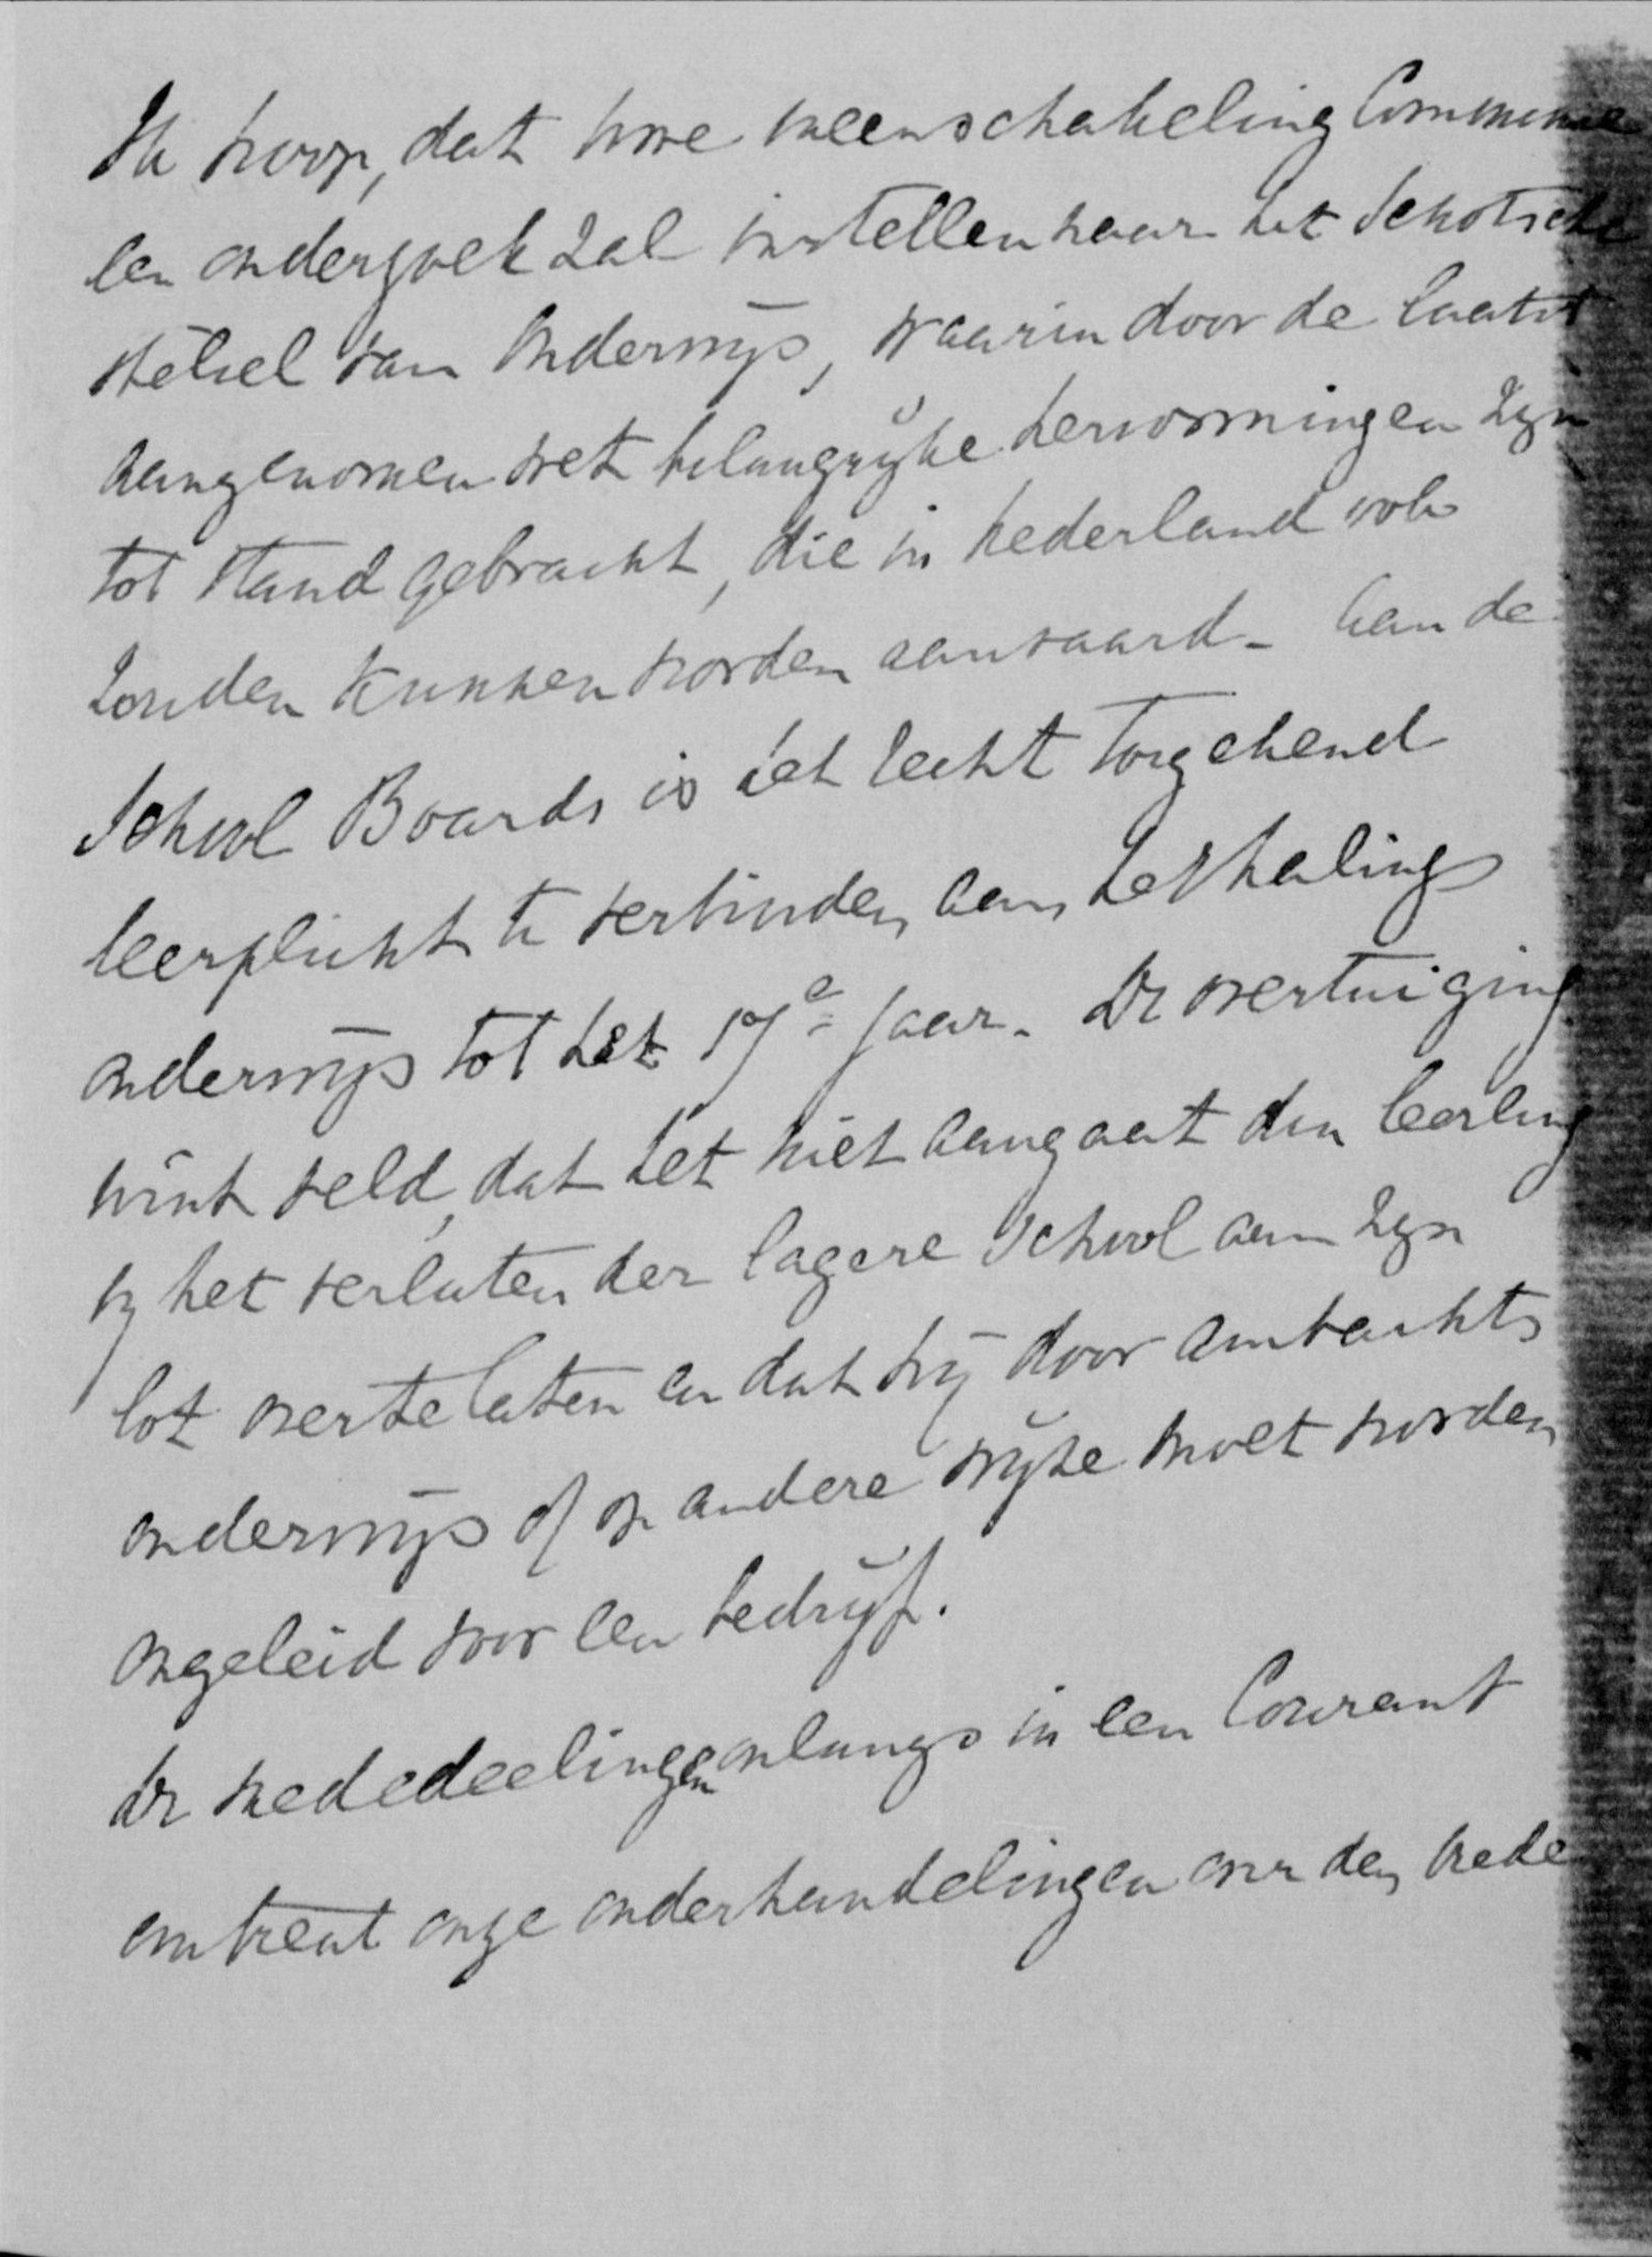 Ik hoop, dat Uwe ineenschakeling Commissie
een onderzoek zal instellen naar het Schotsche
stelsel van Onderwijs, waarin door de laatst
aangenomen wet belangrijke hervormingen zijn
tot stand gebracht, die in Nederland ook
zouden kunnen worden aanvaard. Aan de
School Boards is het recht toegekend
leerplicht te verbinden aan herhalings
onderwijs tot het 17e jaar. De overtuiging
wint veld, dat het niet aangaat den leerling
bij het verlaten der lagere School aan zijn
lot over te laten en dat hij door ambachts
onderwijs of op andere wijze moet worden
opgeleid voor een bedrijf.
De mededeelingen onlangs in een Courant
omtrent onze onderhandelingen over den vrede